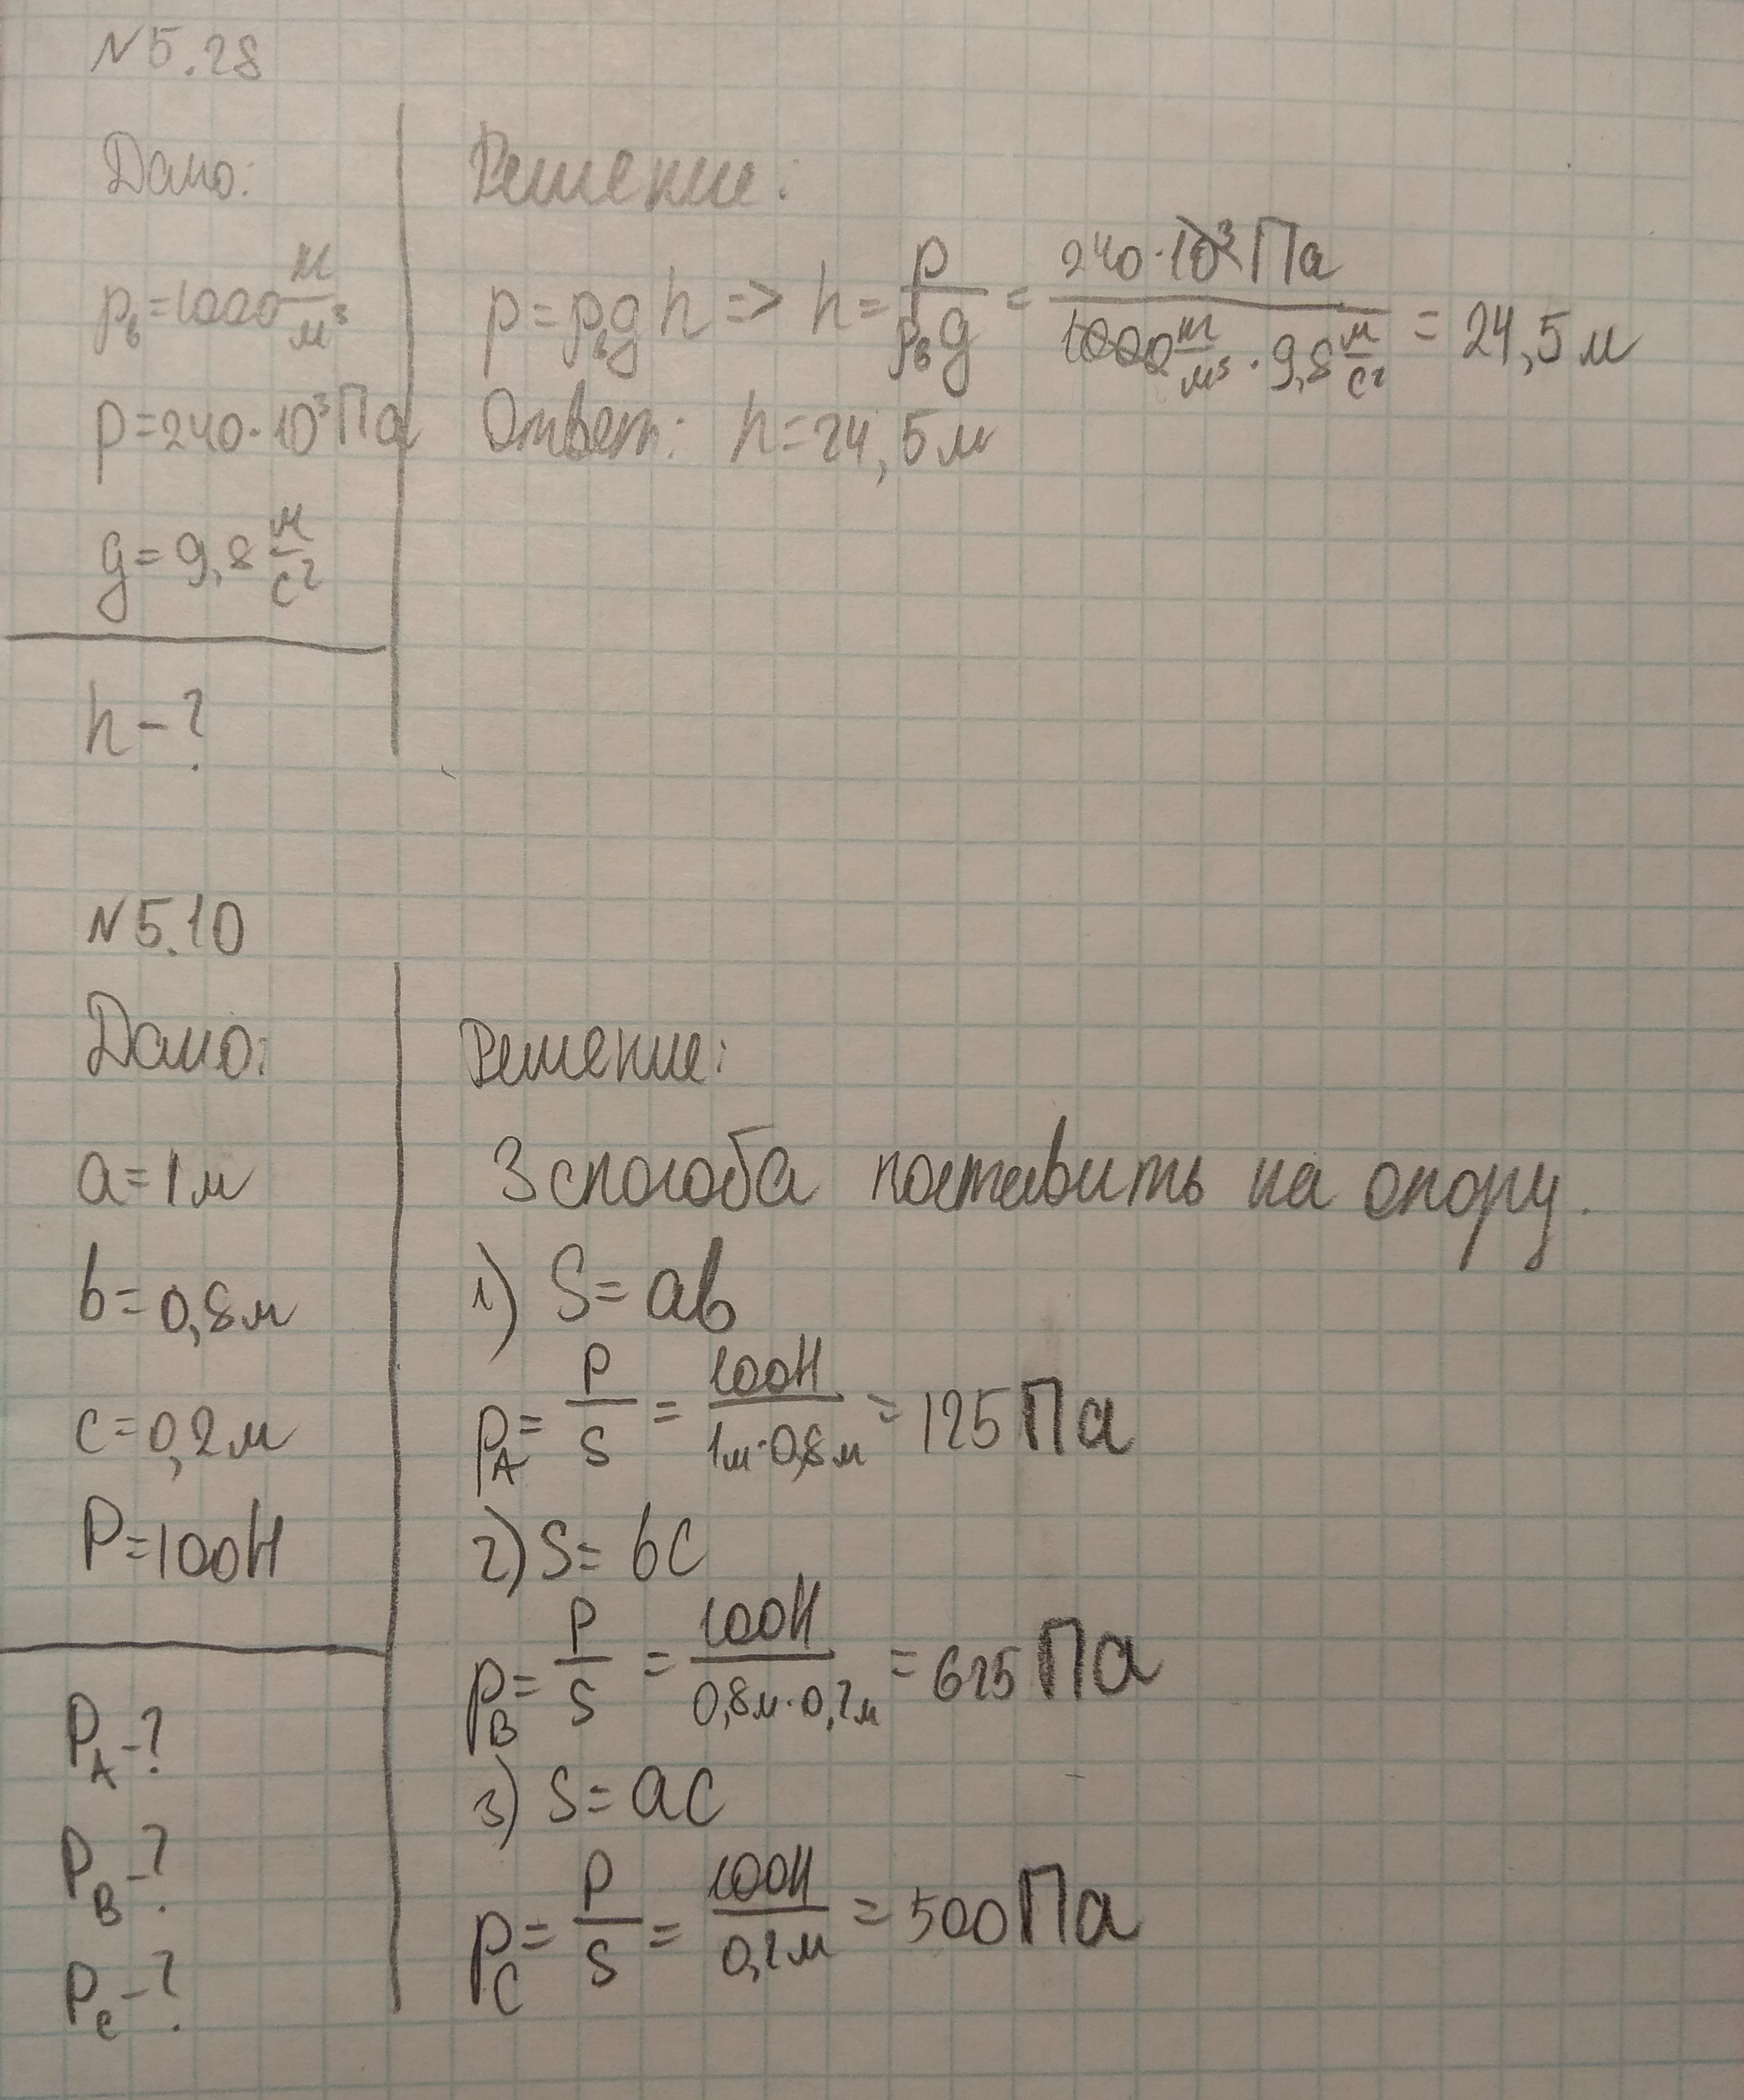 N 5.28
Дано:
ρв=1000 кг/м³
p=240·10³Па
g=9,8 м/с²
h-?
Решение:
p=ρвgh=>h=p/ρвg=240·10³Па/1000кг/м³·9,8м/с²=24,5м
Ответ: h=24,5м
N 5.10
Дано:
a=1м
b=0,8м
c=0,2м
P=100Н
PA-?
PB-?
Pc-?
Решение:
3 способа поставить на опору.
1) S=ab
pA=P/S=100Н/1м·0,8м=125Па
2) S=bc
pB=P/S=100Н/0,8м·0,2м=625Па
3) S=ac
pC=P/S=100Н/0,2м=500Па